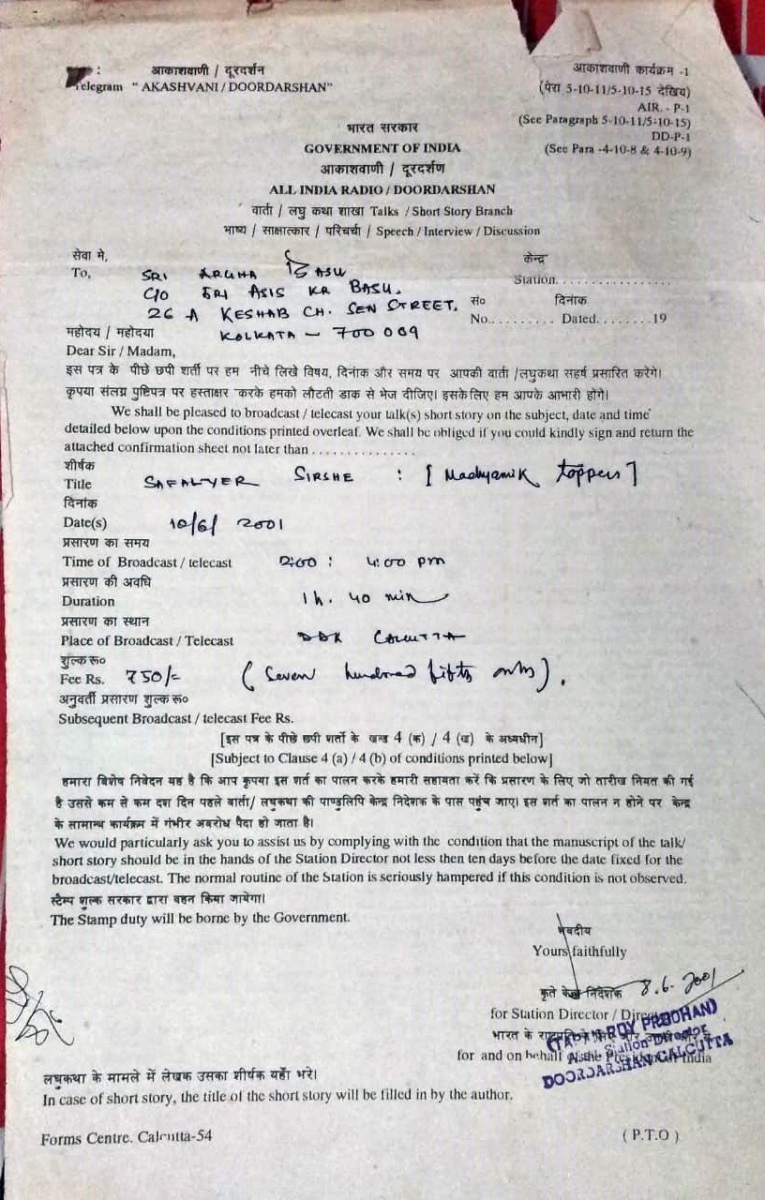 : आकाशवाणी / दूरदर्शन
Telegram " AKASHVANI / DOORDARSHAN"
आकाशवाणी कार्यक्रम -1
(पेरा 5-10-11/5-10-15 देखिय)
AIR. - P-1
(See Paragraph 5-10-11/5-10-15)
DD-P-1
(See Para -4-10-8 & 4-10-9)
भारत सरकार
GOVERNMENT OF INDIA
आकाशवाणी / दूरदर्शण
ALL INDIA RADIO / DOORDARSHAN
वार्ता / लघु कथा शाखा Talks / Short Story Branch
भाष्य / साक्षात्कार / परिचर्चा / Speech / Interview / Discussion
सेवा मे,
To, SRI ARGHA BASU
C/O SRI ASIS KR BASU.
26 A KESHAB CH. SEN STREET,
KOLKATA — 700 009
केन्द्र
Station....................
सं० दिनांक
No.......... Dated........ 19
महोदय / महोदया
Dear Sir / Madam,
इस पत्र के पीछे छपी शर्ती पर हम नीचे लिखे विषय, दिनांक और समय पर आपकी वार्ता /लघुकथा सहर्ष प्रसारित करेगे।
कृपया संलग्न पुष्टिपत्र पर हस्ताक्षर करके हमको लौटती डाक से भेज दीजिए। इसके लिए हम आपके आभारी होंगे।
We shall be pleased to broadcast / telecast your talk(s) short story on the subject, date and time
detailed below upon the conditions printed overleaf. We shall be obliged if you could kindly sign and return the
attached confirmation sheet not later than ...............
शीर्षक
Title SAFALYER SIRSHE : [ Madhyamik toppers ]
दिनांक
Date(s) 10/6/ 2001
प्रसारण का समय
Time of Broadcast / telecast 2:00 : 4:00 pm
प्रसारण की अवधि
Duration 1 h. 40 min
प्रसारण का स्थान
Place of Broadcast / Telecast DDK CALCUTTA
शुल्क रू०
Fee Rs. 750/- ( Seven hundred fifty only ).
अनुवर्ती प्रसारण शुल्क रू०
Subsequent Broadcast / telecast Fee Rs.
[इस पत्र के पीछे छपी शर्तो के खन्ड 4 (क) / 4 (ख) के अध्यधीन]
[Subject to Clause 4 (a) / 4 (b) of conditions printed below]
हमारा बिशेष निवेदन यह है कि आप कृपया इस शर्त का पालन करके हमारी सहायता करें कि प्रसारण के लिए जो तारीख नियत की गई
है उससे कम से कम दश दिन पहले वार्ता/ लघुकथा की पाण्डुलिपि केन्द्र निदेशक के पास पहुंच जाए। इस शर्त का पालन न होने पर केन्द्र
के सामान्य कार्यक्रम में गंभीर अबरोध पैदा हो जाता है।
We would particularly ask you to assist us by complying with the condition that the manuscript of the talk/
short story should be in the hands of the Station Director not less then ten days before the date fixed for the
broadcast/telecast. The normal routine of the Station is seriously hampered if this condition is not observed.
स्टैम्प शुल्क सरकार द्वारा बहन किया जायेगा।
The Stamp duty will be borne by the Government.
भवदीय
Yours faithfully
कृते केन्द्र निदेशक 8.6.2001
for Station Director / Director
भारत के
for and on behalf of the President of India
(TAPAN ROY PRODHAN)
Asstt. Station Director
DOORDARSHAN CALCUTTA
लघुकथा के मामले में लेखक उसका शीर्षक यहाँ भरे।
In case of short story, the title of the short story will be filled in by the author.
Forms Centre. Calcutta-54
( P.T.O )